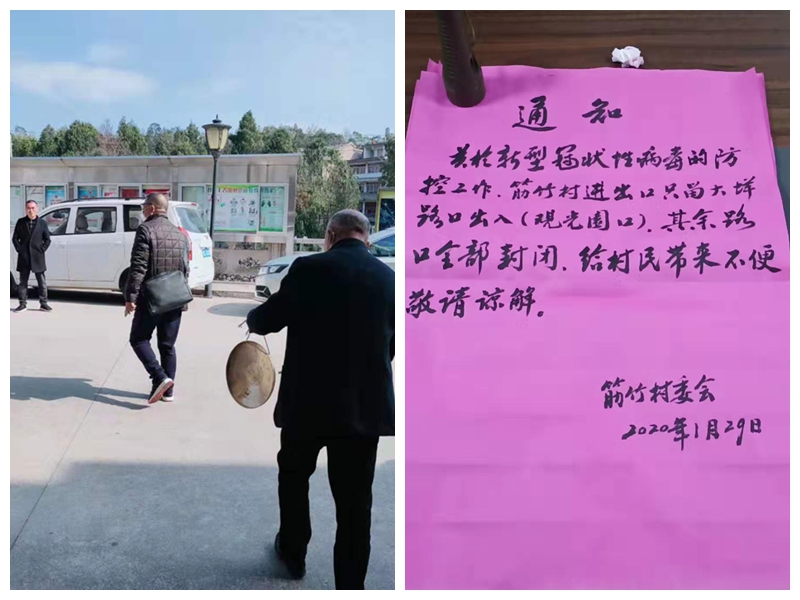 通知
关于新型冠状性病毒的防
控工作、筋竹村进出口只留大垟
路口出入(观光园口)，其余路
口全部封闭、给村民带来不便
敬请谅解。
筋竹村委会
2020年1月29日